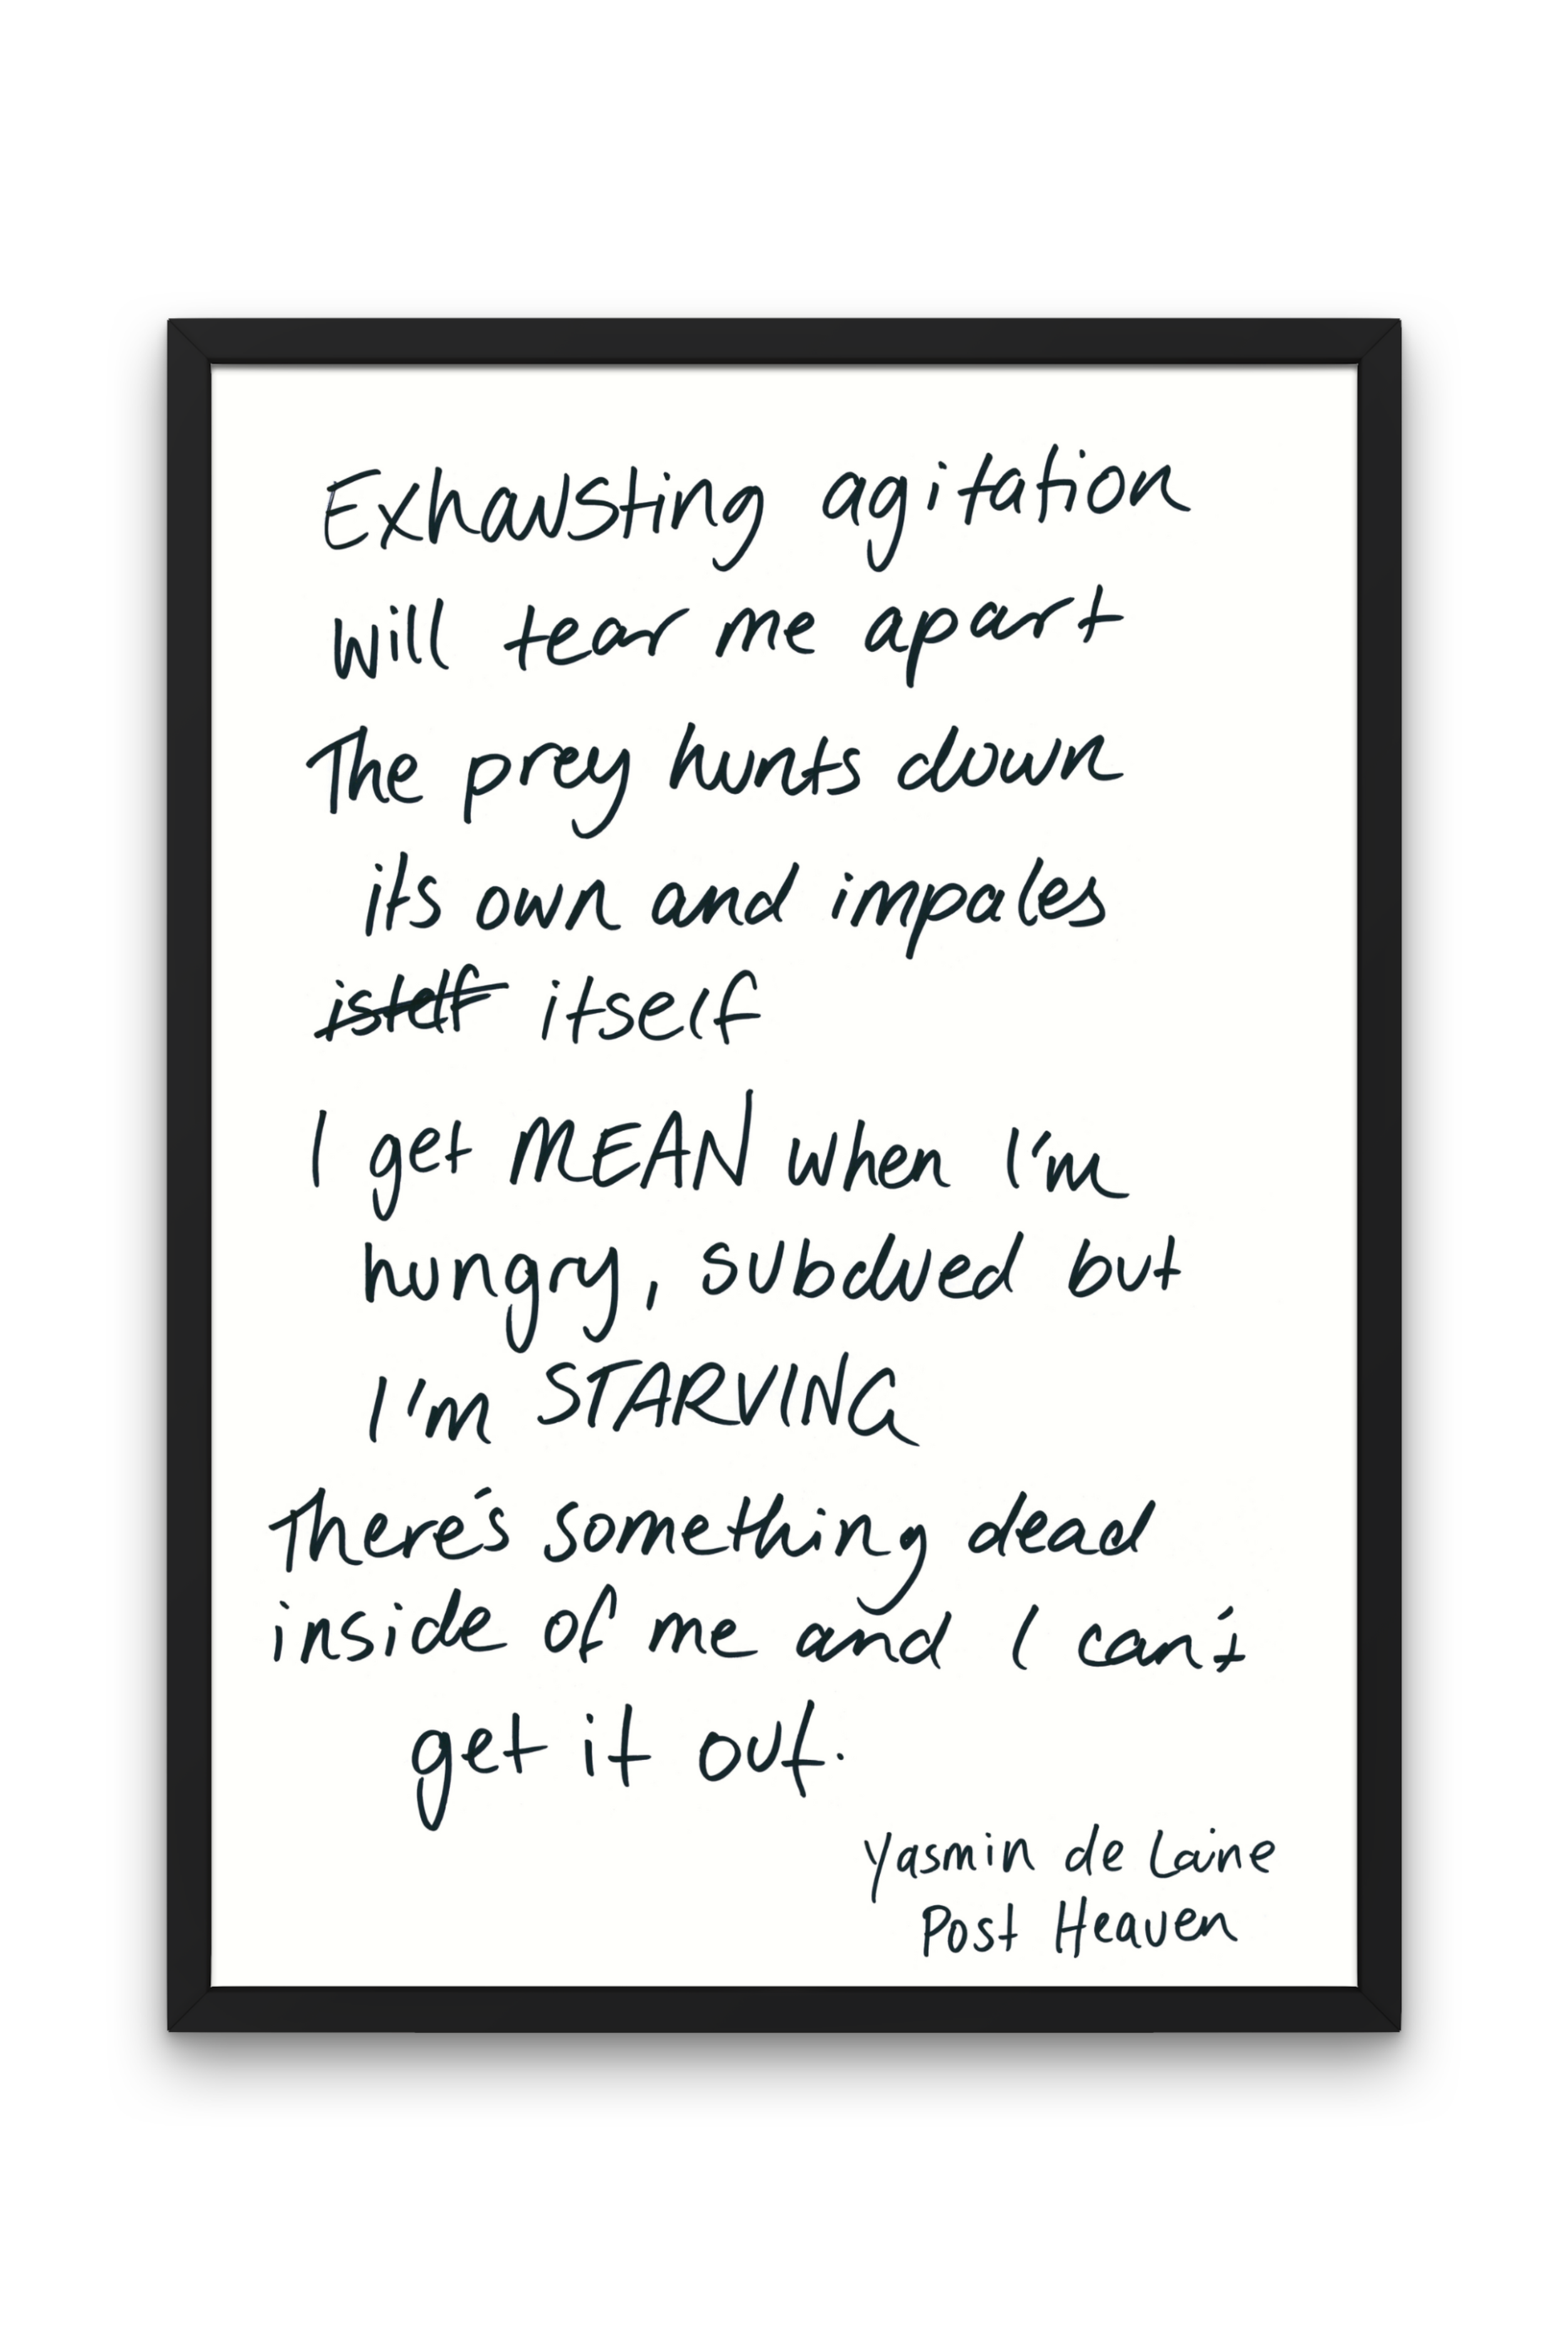 Exhausting agitation
will tear me apart
The prey hunts down
its own and impales
istelf itself
I get MEAN when I'm
hungry, subdued but
I'm STARVING
There's something dead
inside of me and I can't
get it out.
Yasmin de Laine
Post Heaven